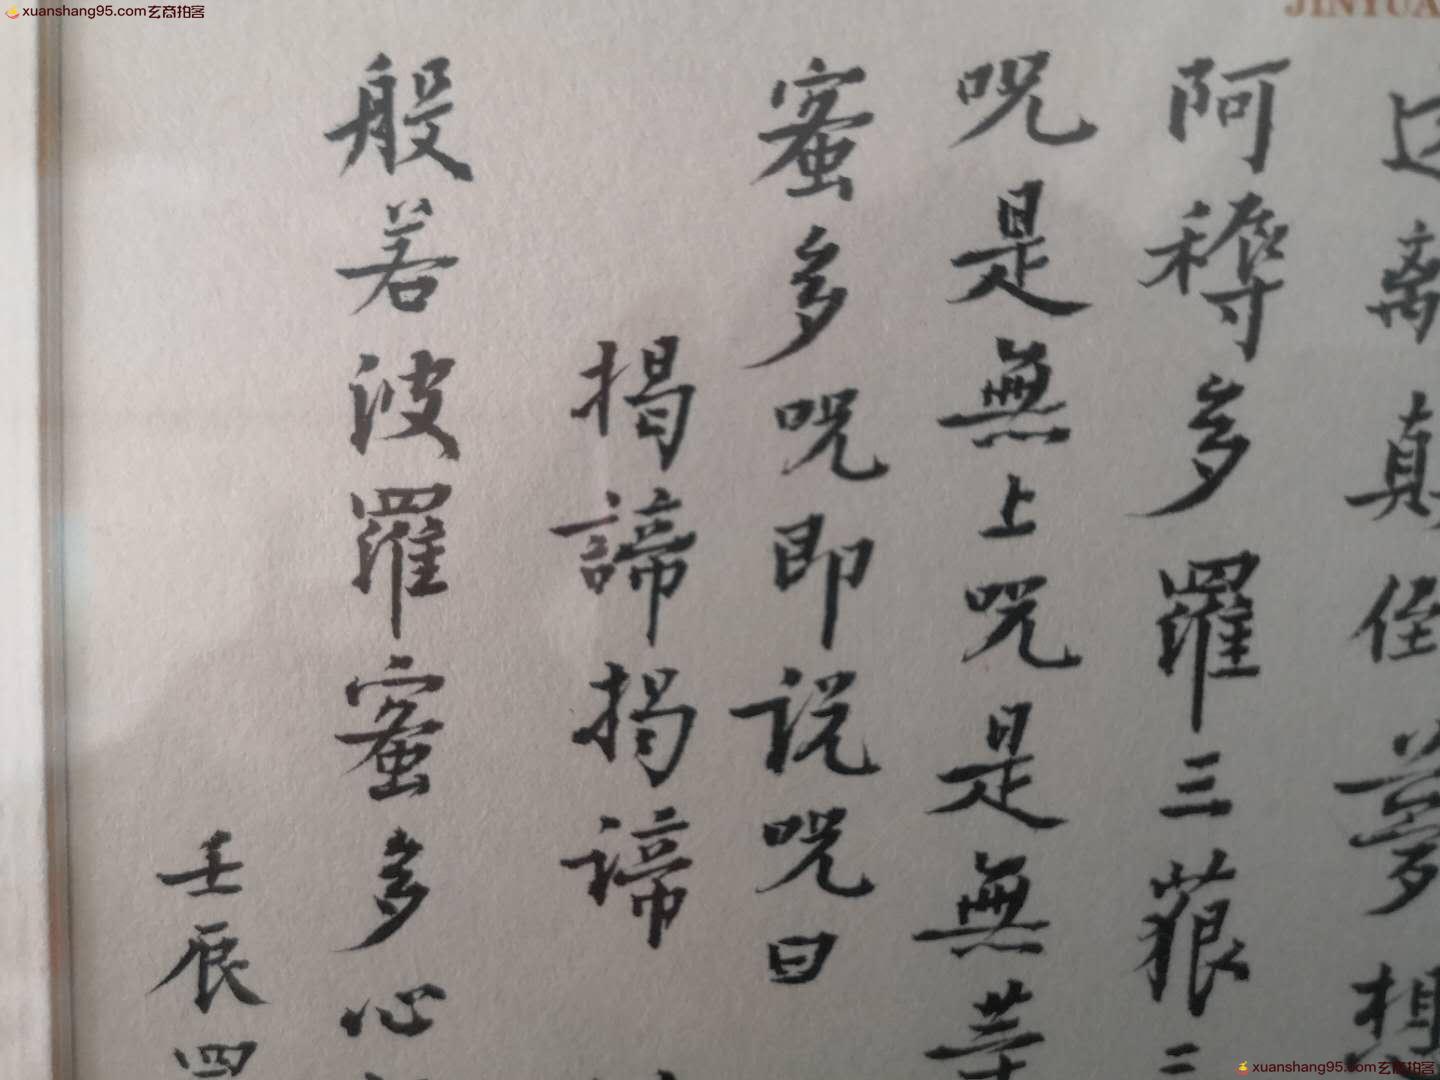 xuanshang95.com玄商拍客
JINYUA
离真侄夢想
阿稱多羅三藐三
咒是無上咒是無等
蜜多咒即说咒曰
揭諦揭諦
般若波羅蜜多心
壬辰四
xuanshang95.com玄商拍客